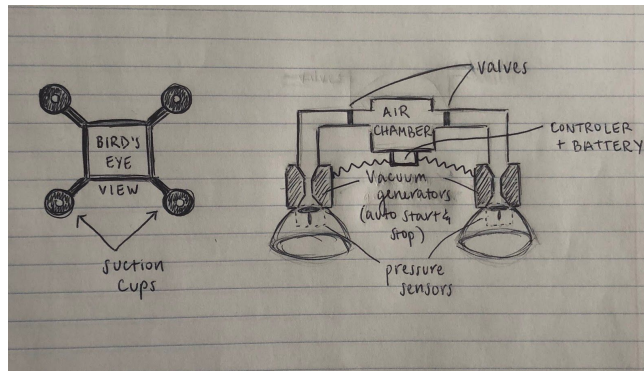 BIRD'S
EYE
VIEW
suction
cups
valves
AIR
CHAMBER
CONTROLER
+ BATTERY
Vacuum
generators
(auto start &
stop)
pressure
sensors